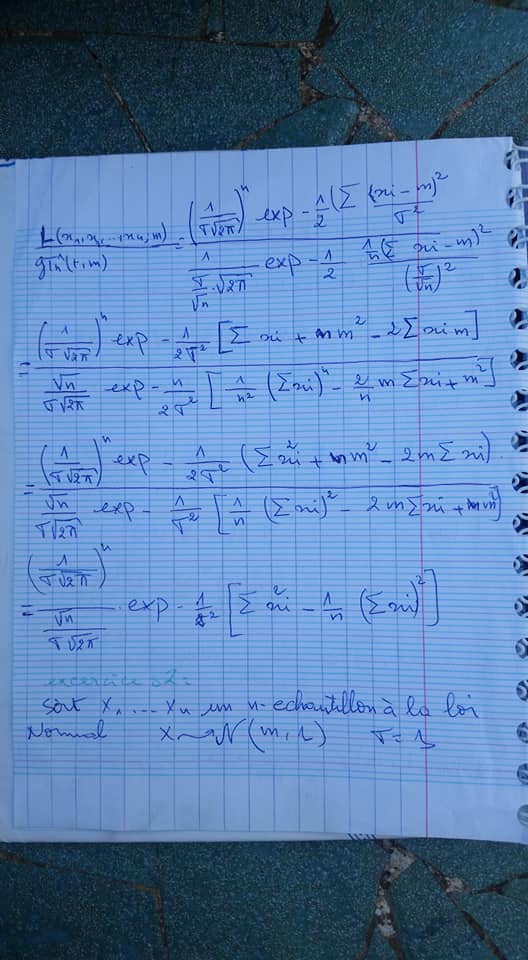 L(x₁,x₂,...,xₙ,m) / gTₙ(t,m) = (1/(σ√2π))ⁿ exp -1/2 (Σ (xi - m)²/σ²
/ 1/(σ/√n · √2π) exp -1/2 1/n(Σ xi - m)²/(σ/√n)²
= (1/(σ√2π))ⁿ exp - 1/2σ² [Σ xi + n m² - 2Σ xi m]
/ √n/(σ√2π) exp - n/2σ² [1/n² (Σxi)ⁿ - 2/n m Σxi + m²]
= (1/(σ√2π))ⁿ exp - 1/2σ² (Σxi² + n m² - 2m Σxi)
/ √n/(σ√2π) exp - 1/σ² [1/n (Σxi)² - 2mΣxi + n m²]
= (1/(σ√2π))ⁿ / √n/(σ√2π) · exp - 1/2² [Σ xi² - 1/n (Σxi)²]
excercice 02:
soit X₁ ... Xₙ un n-echantillon à la loi
Normal X⤳N(m,1) σ=1